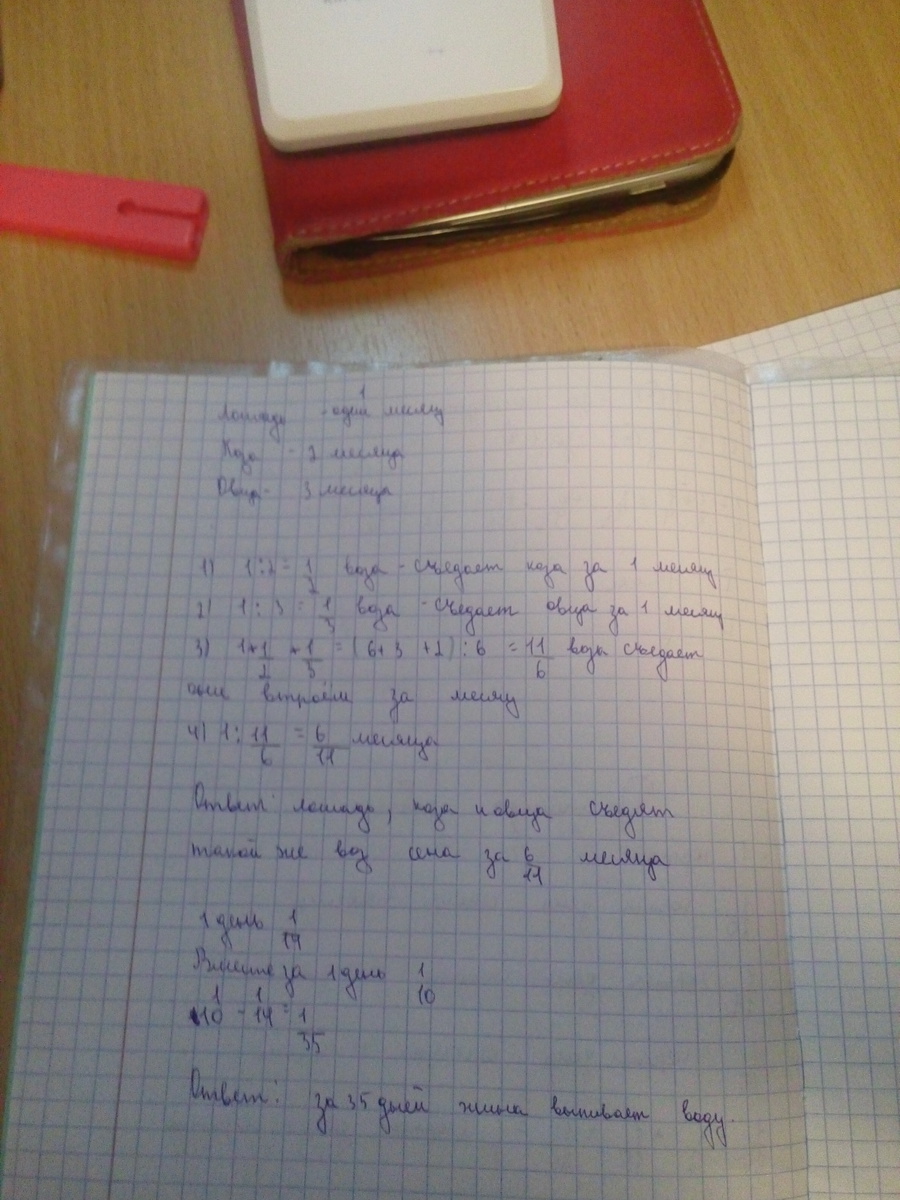 Лошадь - один месяц
1
Коза - 2 месяца
Овца - 3 месяца
1) 1:2=1/2 воза - съедает коза за 1 месяц
2) 1:3=1/3 воза - съедает овца за 1 месяц
3) 1+1/2+1/3=(6+3+2):6=11/6 воза съедает
они втроём за месяц
4) 1:11/6=6/11 месяца
Ответ: лошадь, коза и овца съедят
такой же воз сена за 6/11 месяца
1 день 1/14
Вместе за 1 день 1/10
1/10-1/14=1/35
Ответ: за 35 дней жена выпивает воду.